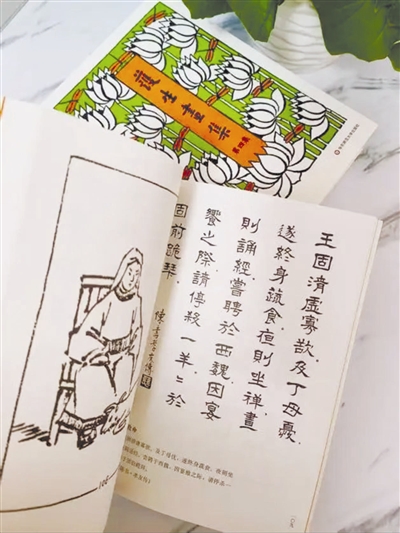 護生畫集
第四集
王固清虛寡欲及丁母憂
遂終身蔬食夜則坐禪晝
則誦經嘗聘於西魏因宴
饗之際請停殺一羊〻於
固前跪拜
陳書王固傳